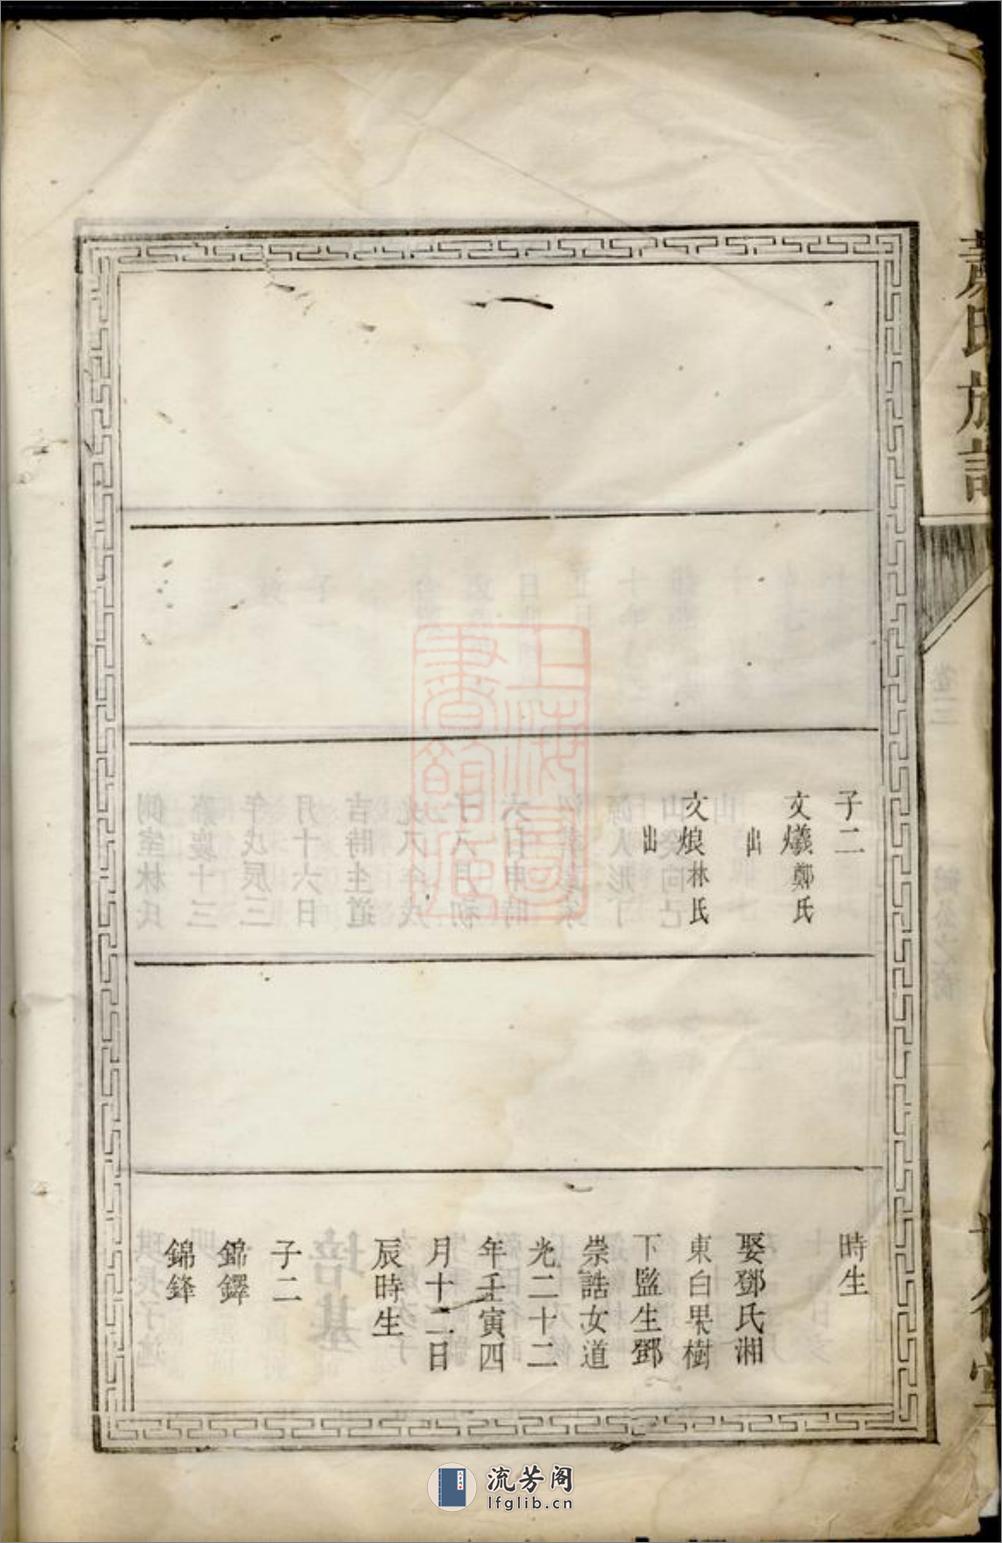 蕭氏族譜
子二
文㸌鄭氏
出
文烺林氏
出
時生
娶鄧氏湘
東白果樹
下監生鄧
崇誥女道
光二十二
年壬寅四
月十二日
辰時生
子二
錦鐸
錦鋒
上海圖書館藏
流芳阁
lfglib.cn